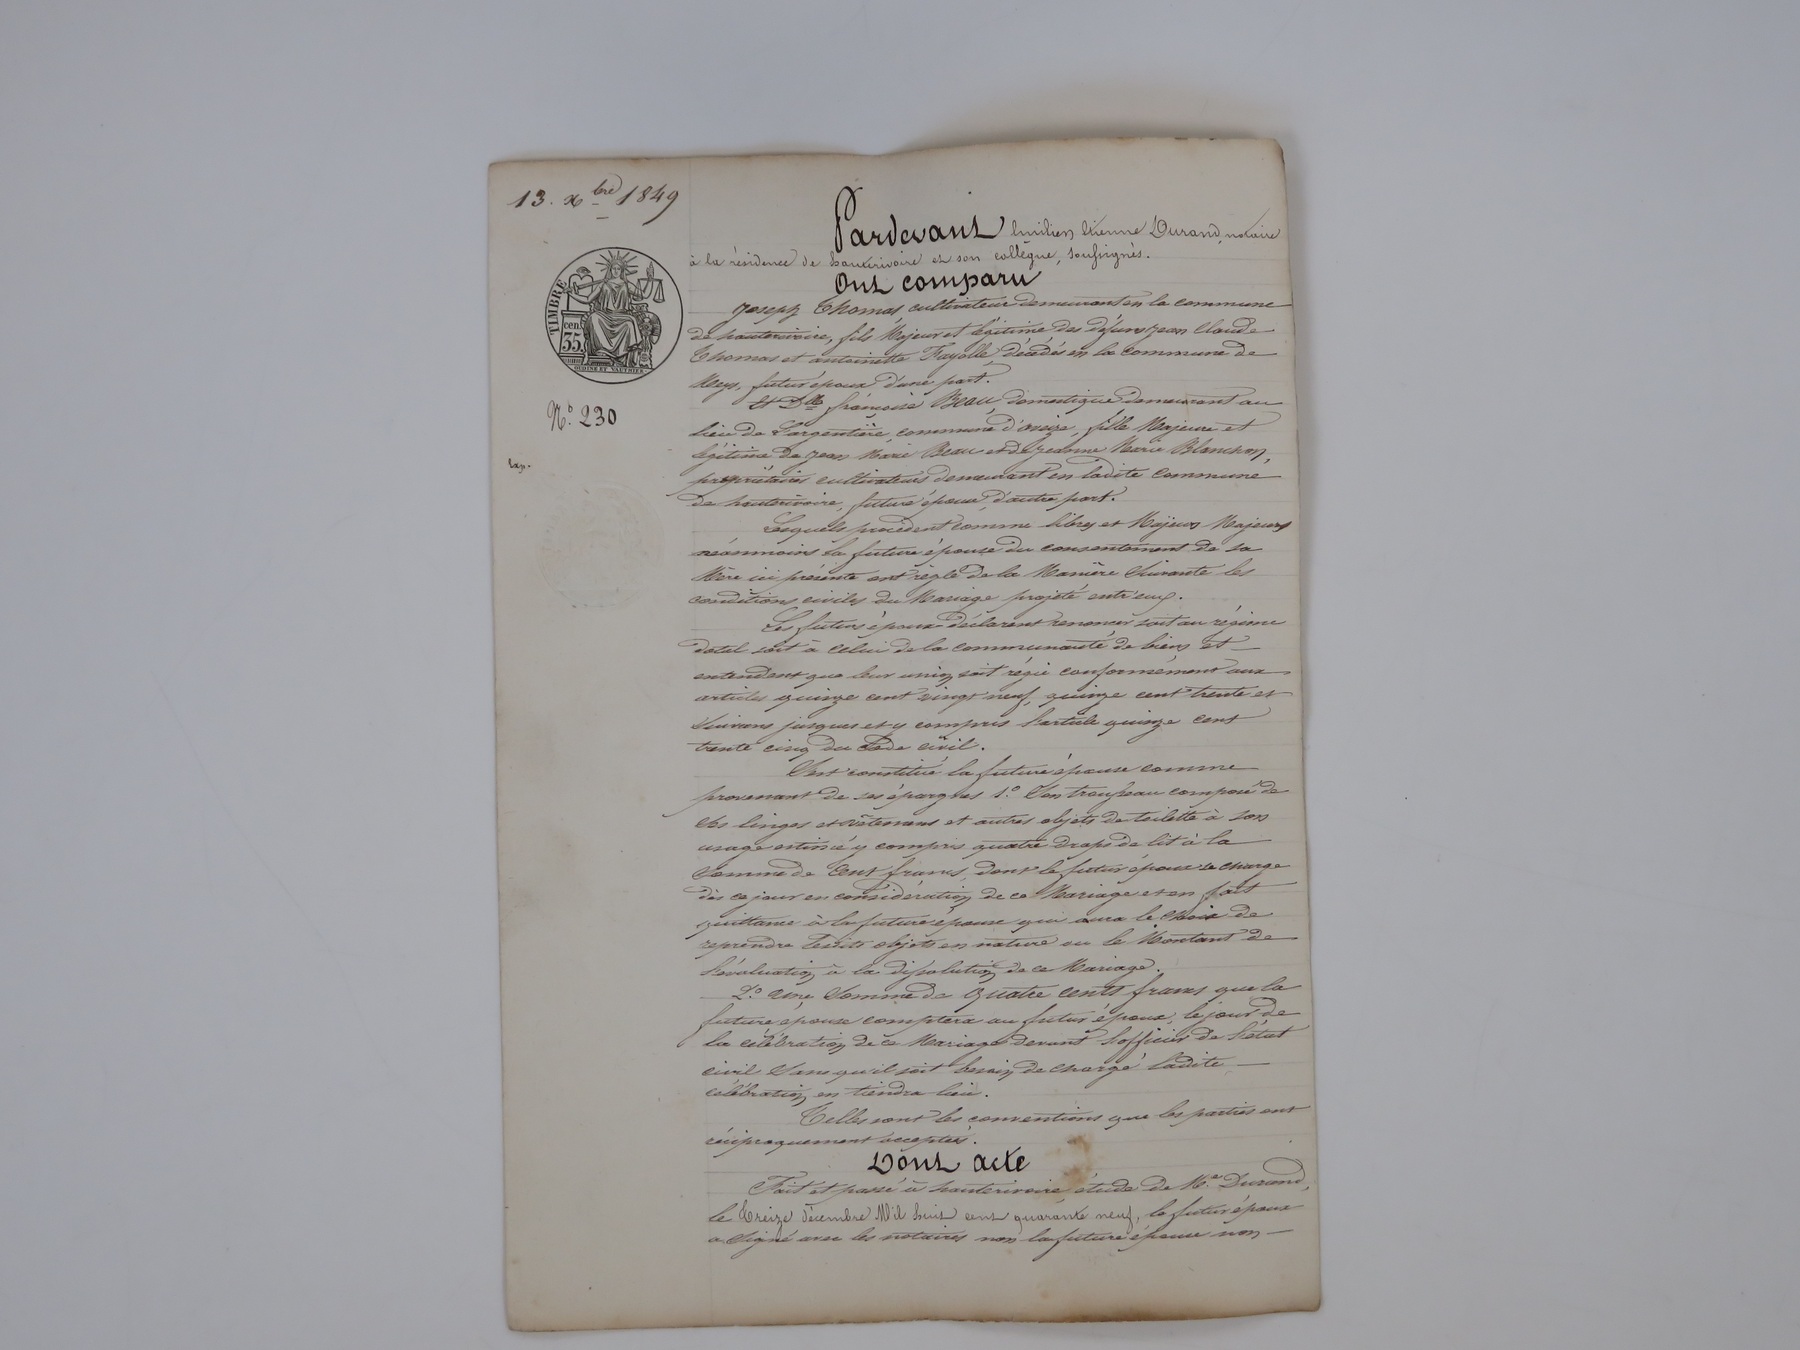 13. xbre 1849
TIMBRE
cen.
35.
OUDINÉ ET VAUTHIER
No. 230
Pardevant Emilien Etienne Durand, notaire
à la résidence de hauterivoire et son collègue, soussignés.
Ont comparu
Joseph Thomas cultivateur demeurant en la commune
de hauterivoire, fils Majeur et légitime des défunts Jean Claude
Thomas et antoinette Fayolle, décédés en la commune de
Meys, futur époux d'une part.
Et Dlle françoise Beau, domestique demeurant au
lieu de Largentière, commune d'aveize, fille Majeure et
légitime de Jean Marie Beau et de Jeanne Marie Blanchon,
propriétaires cultivateurs demeurant en ladite commune
de hauterivoire, future épouse, d'autre part.
Lesquels procédent comme libres et Majeurs
néanmoins la future épouse du consentement de sa
Mère ici présente ont réglé de la Manière suivante les
conditions civiles du Mariage projeté entr'eux.
Les futurs époux déclarent renoncer soit au régime
dotal soit à celui de la communauté de biens et
entendent que leur union soit régie conformément aux
articles quinze cent vingt neuf, quinze cent trente et
suivans jusques et y compris l'article quinze cent
trente cinq du Code civil.
S'est constitué la future épouse comme
provenant de ses épargnes 1.o Son trousseau composé de
ses linges et vêtemens et autres objets de toilette à son
usage estimé y compris quatre draps de lit à la
somme de Cent francs, dont le futur époux se charge
dès ce jour en considération de ce Mariage et en fait
quittance à la future épouse qui aura le choix de
reprendre lesdits objets en nature ou le Montant de
l'évaluation à la dissolution de ce Mariage.
2.o Une somme de quatre cents francs que la
future épouse comptera au futur époux, le jour de
la célébration de ce Mariage devant l'officier de l'état
civil sans qu'il soit besoin de charge ladite
célébration en tiendra lieu.
Telles sont les conventions que les parties ont
réciproquement acceptées.
Dont acte
Fait et passé à hauterivoire étude de Me. Durand,
le treize décembre Mil huit cent quarante neuf, le futur époux
a signé avec les notaires non la future épouse non